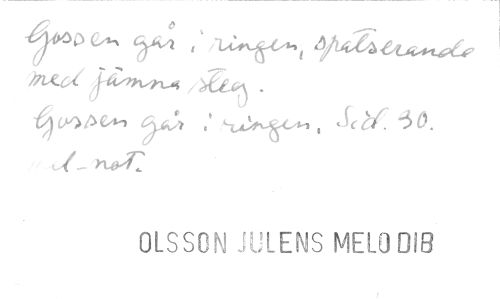 Gossen går i ringen, spatserande
med jämna steg.
Gossen går i ringen. Sid. 30.
mel-not.
OLSSON JULENS MELODIB